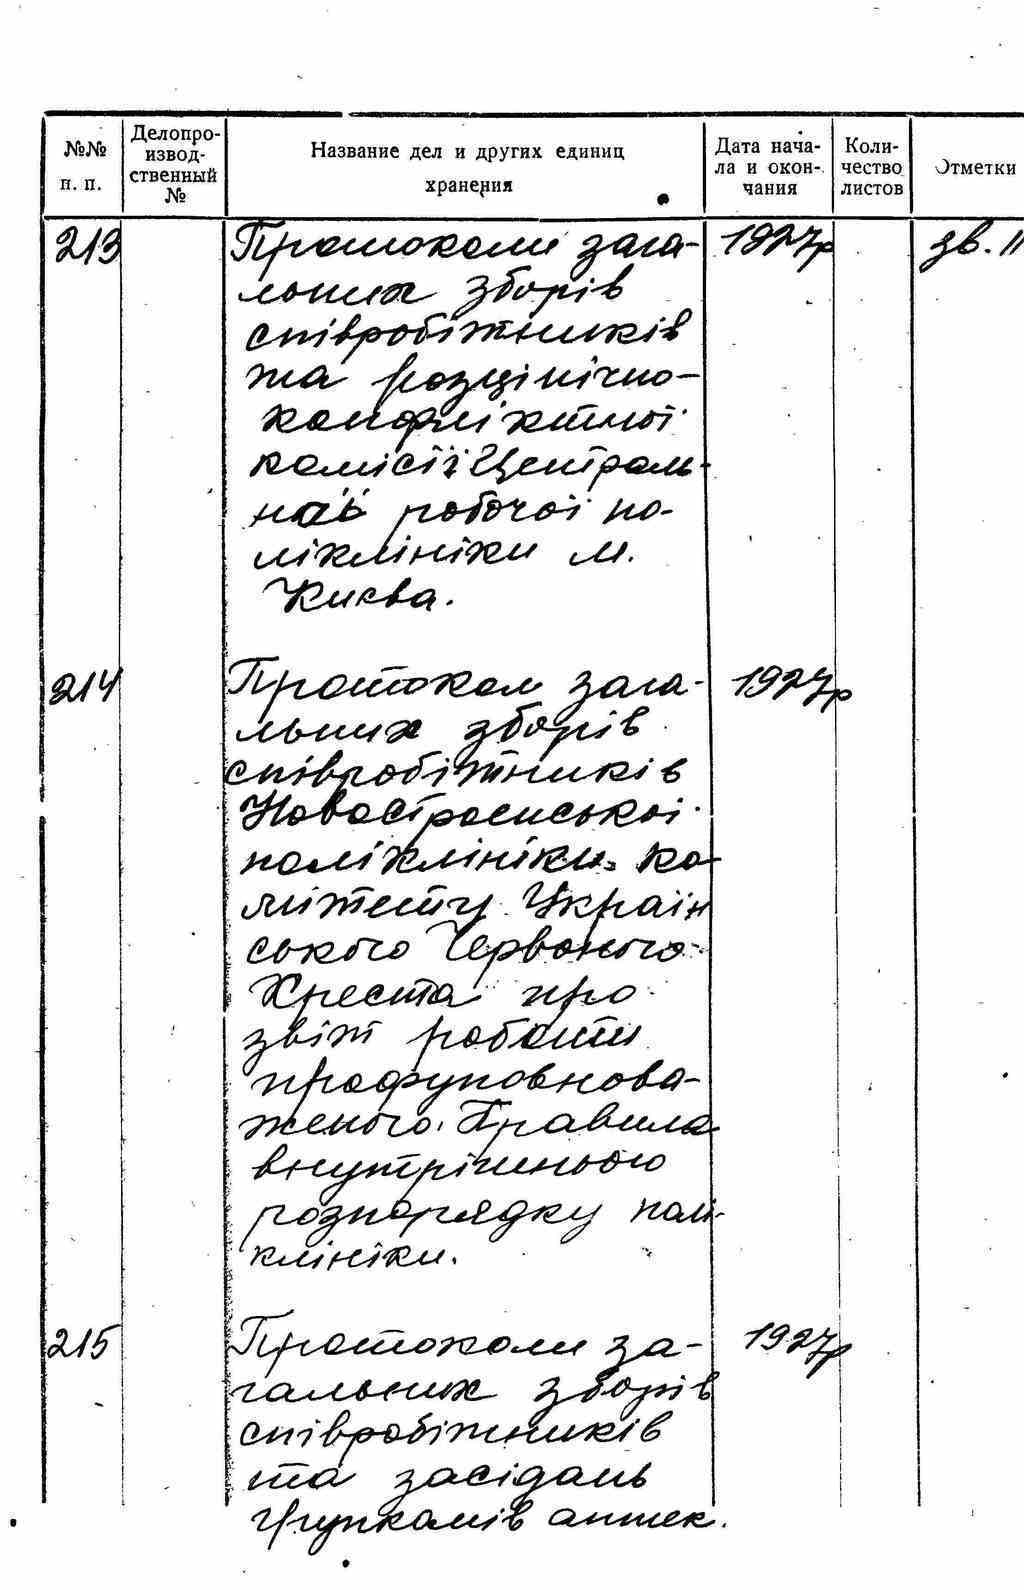 №№ п. п.
Делопроизвод-ственный №
Название дел и других единиц хранения
Дата нача-ла и окон-чания
Коли-чество листов
Отметки
213 Протоколи зага- 1927р зв. II
льних зборів
співробітників
та розцінічно-
конфліктної
комісії Централь-
ної робочої по-
ліклініки м.
Києва.
214 Протокол зага- 1927р
льних зборів
співробітників
Новостроєнської
поліклініки ко-
мітету Україн
ського Червоного
Хреста про
звіт роботи
профуповнова-
женого. Правила
внутрішнього
розпорядку полі-
клініки.
215 Протоколи за- 1927р
гальних зборів
співробітників
та засідань
групкомів аптек.